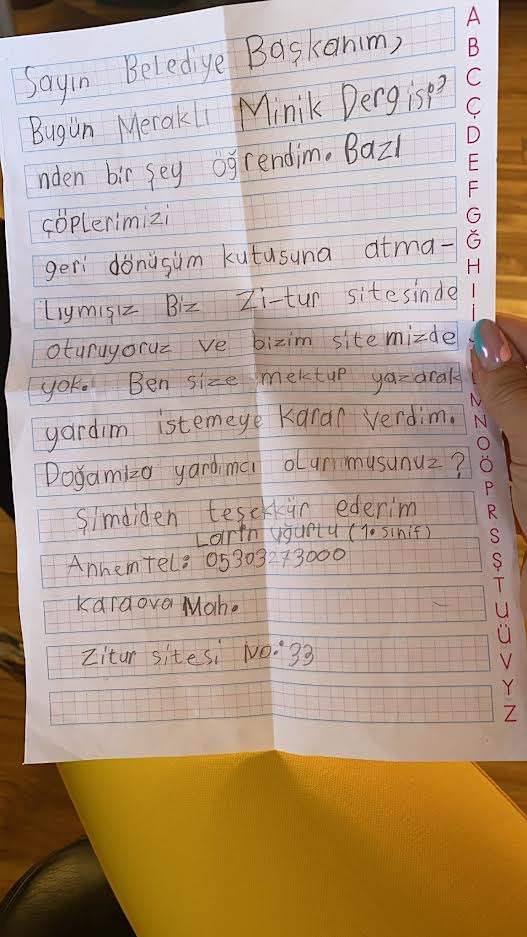 Sayın Belediye Başkanım,
Bugün Meraklı Minik Dergisi
nden bir şey öğrendim. Bazı
çöplerimizi
geri dönüşüm kutusuna atma-
lıymışız Biz Zi-tur sitesinde
oturuyoruz ve bizim sitemizde
yok. Ben size mektup yazarak
yardım istemeye karar verdim.
Doğamıza yardımcı olurmusunuz?
Şimdiden teşekkür ederim
Larin Uğurlu (1. sınıf)
Annem Tel: 05303273000
Karaova Mah.
Zitur sitesi No: 33
A
B
C
Ç
D
E
F
G
Ğ
H
I
İ
M
N
O
Ö
P
R
S
Ş
T
U
Ü
V
Y
Z